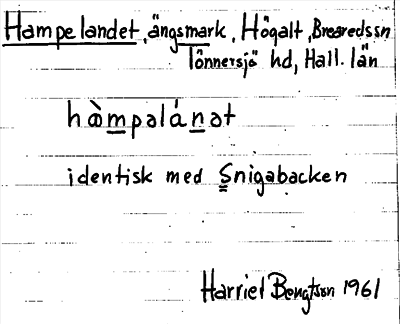 Hampelandet, ängsmark, Högalt, Breareds sn
Tönnersjö hd, Hall. län
hàmpəlánət
identisk med Snigabacken
Harriet Bengtson 1961